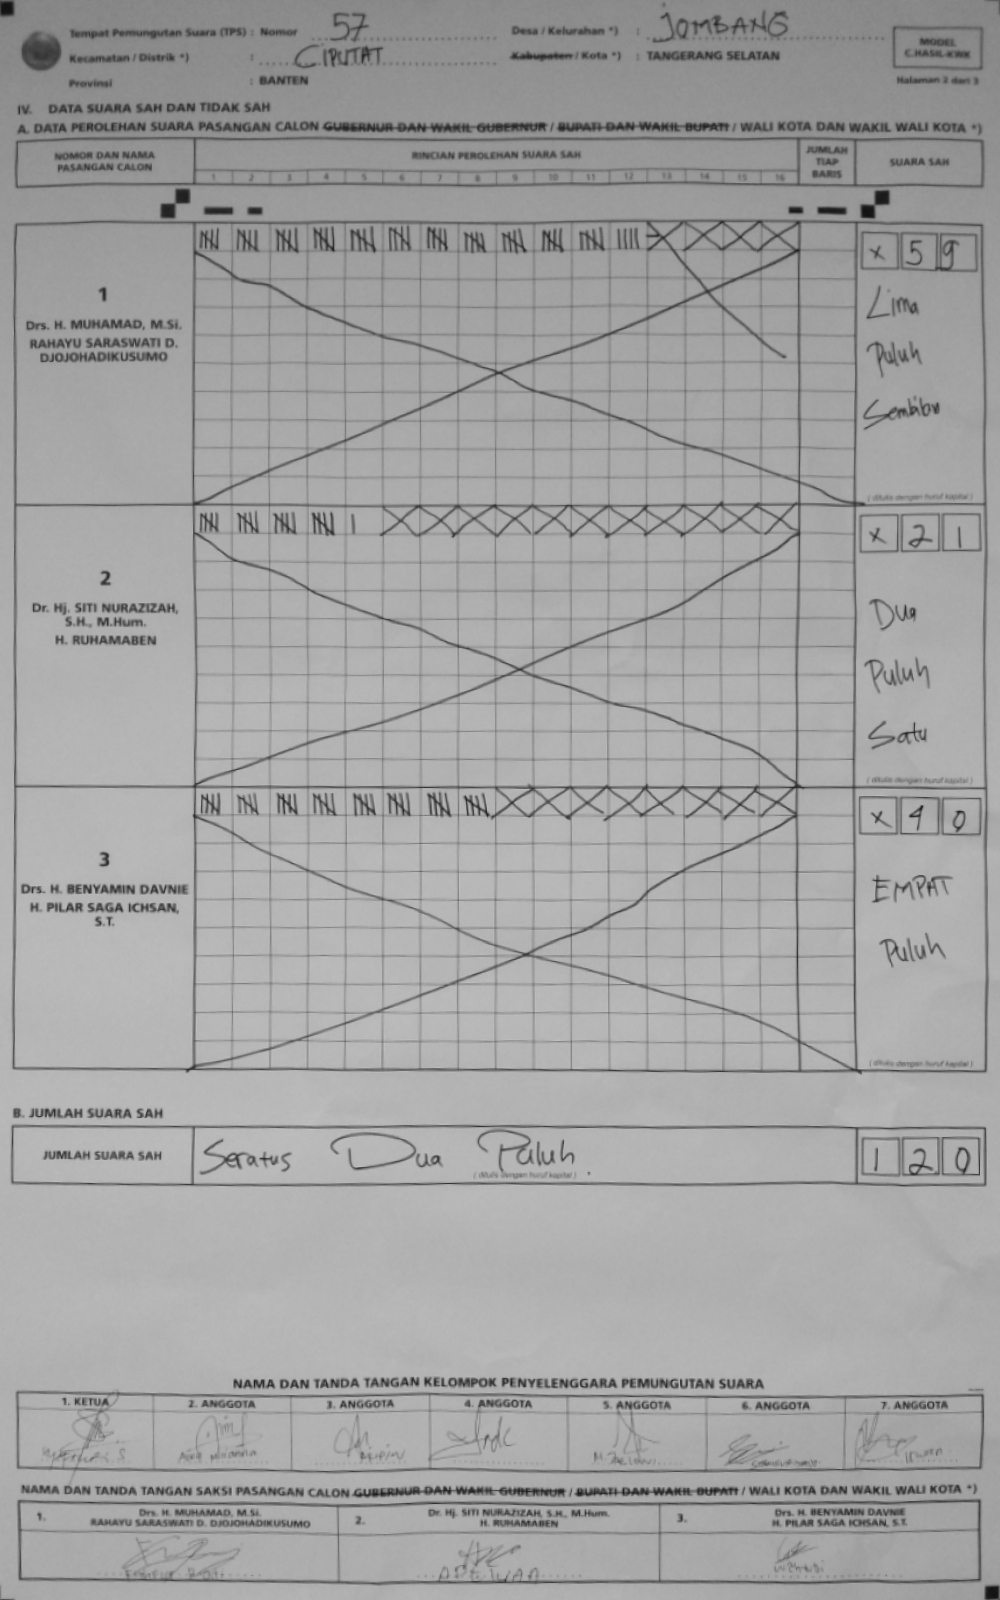 Tempat Pemungutan Suara (TPS) : Nomor 57 Desa / Kelurahan *) : JOMBANG
Kecamatan / Distrik *) : CIPUTAT Kabupaten / Kota *) : TANGERANG SELATAN
Provinsi : BANTEN
MODEL
C.HASIL-KWK
Halaman 2 dari 3
IV. DATA SUARA SAH DAN TIDAK SAH
A. DATA PEROLEHAN SUARA PASANGAN CALON GUBERNUR DAN WAKIL GUBERNUR / BUPATI DAN WAKIL BUPATI / WALI KOTA DAN WAKIL WALI KOTA *)
NOMOR DAN NAMA PASANGAN CALON
RINCIAN PEROLEHAN SUARA SAH
1 2 3 4 5 6 7 8 9 10 11 12 13 14 15 16
JUMLAH TIAP BARIS
SUARA SAH
1
Drs. H. MUHAMAD, M.Si.
RAHAYU SARASWATI D.
DJOJOHADIKUSUMO
x 5 9
Lima
Puluh
(ditulis dengan huruf kapital)
2
Dr. Hj. SITI NURAZIZAH,
S.H., M.Hum.
H. RUHAMABEN
x 2 1
Dua
Puluh
Satu
(ditulis dengan huruf kapital)
3
Drs. H. BENYAMIN DAVNIE
H. PILAR SAGA ICHSAN,
S.T.
x 4 0
EMPAT
Puluh
(ditulis dengan huruf kapital)
B. JUMLAH SUARA SAH
JUMLAH SUARA SAH Seratus Dua Puluh. 1 2 0
(ditulis dengan huruf kapital)
NAMA DAN TANDA TANGAN KELOMPOK PENYELENGGARA PEMUNGUTAN SUARA
1. KETUA 2. ANGGOTA 3. ANGGOTA 4. ANGGOTA 5. ANGGOTA 6. ANGGOTA 7. ANGGOTA
NAMA DAN TANDA TANGAN SAKSI PASANGAN CALON GUBERNUR DAN WAKIL GUBERNUR / BUPATI DAN WAKIL BUPATI / WALI KOTA DAN WAKIL WALI KOTA *)
1. Drs. H. MUHAMAD, M.Si.
RAHAYU SARASWATI D. DJOJOHADIKUSUMO
2. Dr. Hj. SITI NURAZIZAH, S.H., M.Hum.
H. RUHAMABEN
3. Drs. H. BENYAMIN DAVNIE
H. PILAR SAGA ICHSAN, S.T.